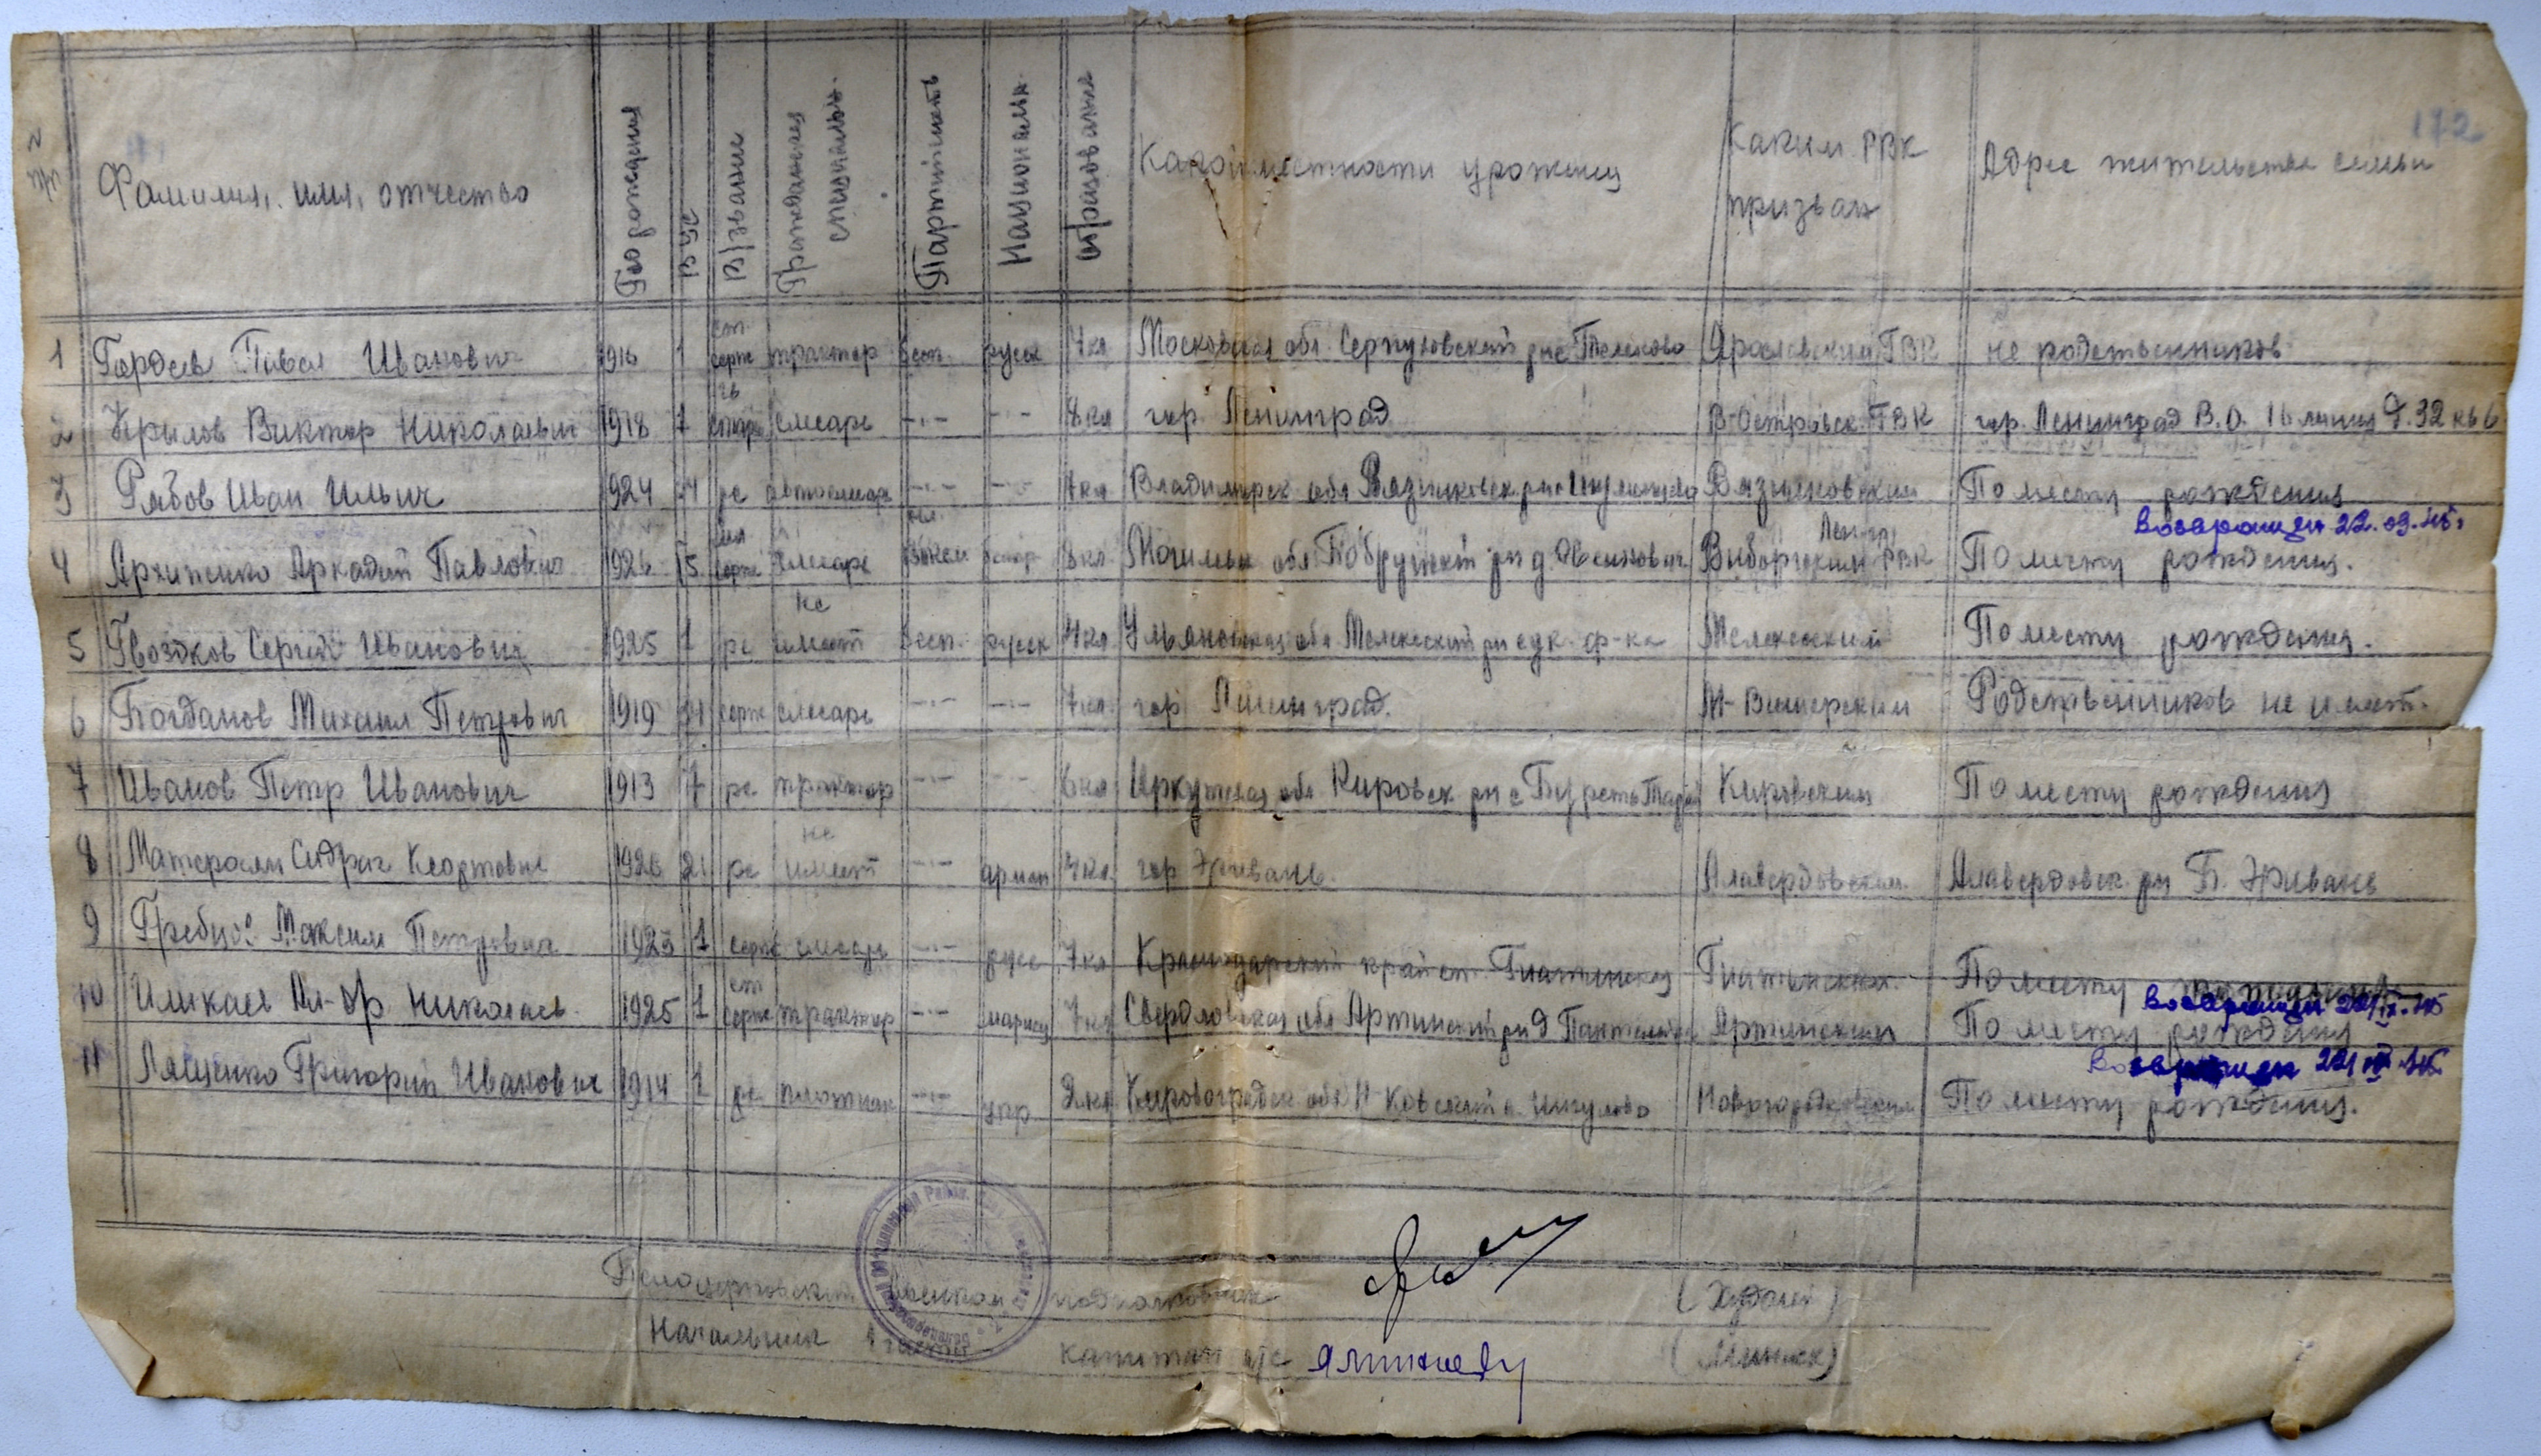 172
№ п/п Фамилия, имя, отчество Год рождения ВУС Звание Гражданская специальн. Партийность Национальн. Образование Какой местности уроженец Каким РВК призван Адрес жительства семьи
1 Гордеев Павел Иванович 1916 1 ст. серж трактор бесп. русск 7кл Московская обл. Серпуховский рн с Ярославский ГВК не родственников
2 Крылов Виктор Николаевич 1918 7 слесарь -"- -"- 8кл гор. Ленинград В-Островск. ГВК гор. Ленинград В.О. 16 линия д. 32 кв 6
3 Рябов Иван Ильич 1924 рс автослесарь -"- -"- 7кл Владимирск обл Вязниковск рн Вязниковским По месту рождения
возвращен 22.09.45г
4 Архипенко Аркадий Павлович 1926 мл серж слесарь чл. ВЛКСМ 8кл Могилевск обл Бобруйский рн д. Ленингр. Выборгским РВК По месту рождения.
5 Гвоздков Сергей Иванович 1925 1 рс не имеет бесп. русск Ульяновская обл Мелекесский рн ф-ка Мелекесский По месту рождения.
6 Богданов Михаил Петрович 1919 серж слесарь -"- -"- 7кл гор. Ленинград. М-Вишерским Родственников не имеет.
7 Иванов Петр Иванович 1913 7 рс трактор -"- -"- 6кл Иркутская обл Кировск рн с Кировским По месту рождения
8 1926 21 рс не имеет -"- армян гор Эривань. Алавердовским. Алавердовск. рн Б. Эривань
9 Максим Петрович 1925 1 серж слесарь -"- русс 7кл Краснодарский край ст. Гиагинская Гиагинским. По месту рождения
возвращен 22/IX-45
10 Ал-др Николаев. 1925 1 ст серж трактор -"- мариец 7кл Свердловская обл Артинский рн д Артинским По месту рождения
возвращен 22/IX 45
11 Лященко Григорий Иванович 1914 1 рс плотник -"- укр 2кл Кировоградск обл Н- ковский с. Ингулово Новгородковским По месту рождения.
Белоцерковский военком подполковник (Худолей)
Начальник 1 части капитан а/с (Минюк)